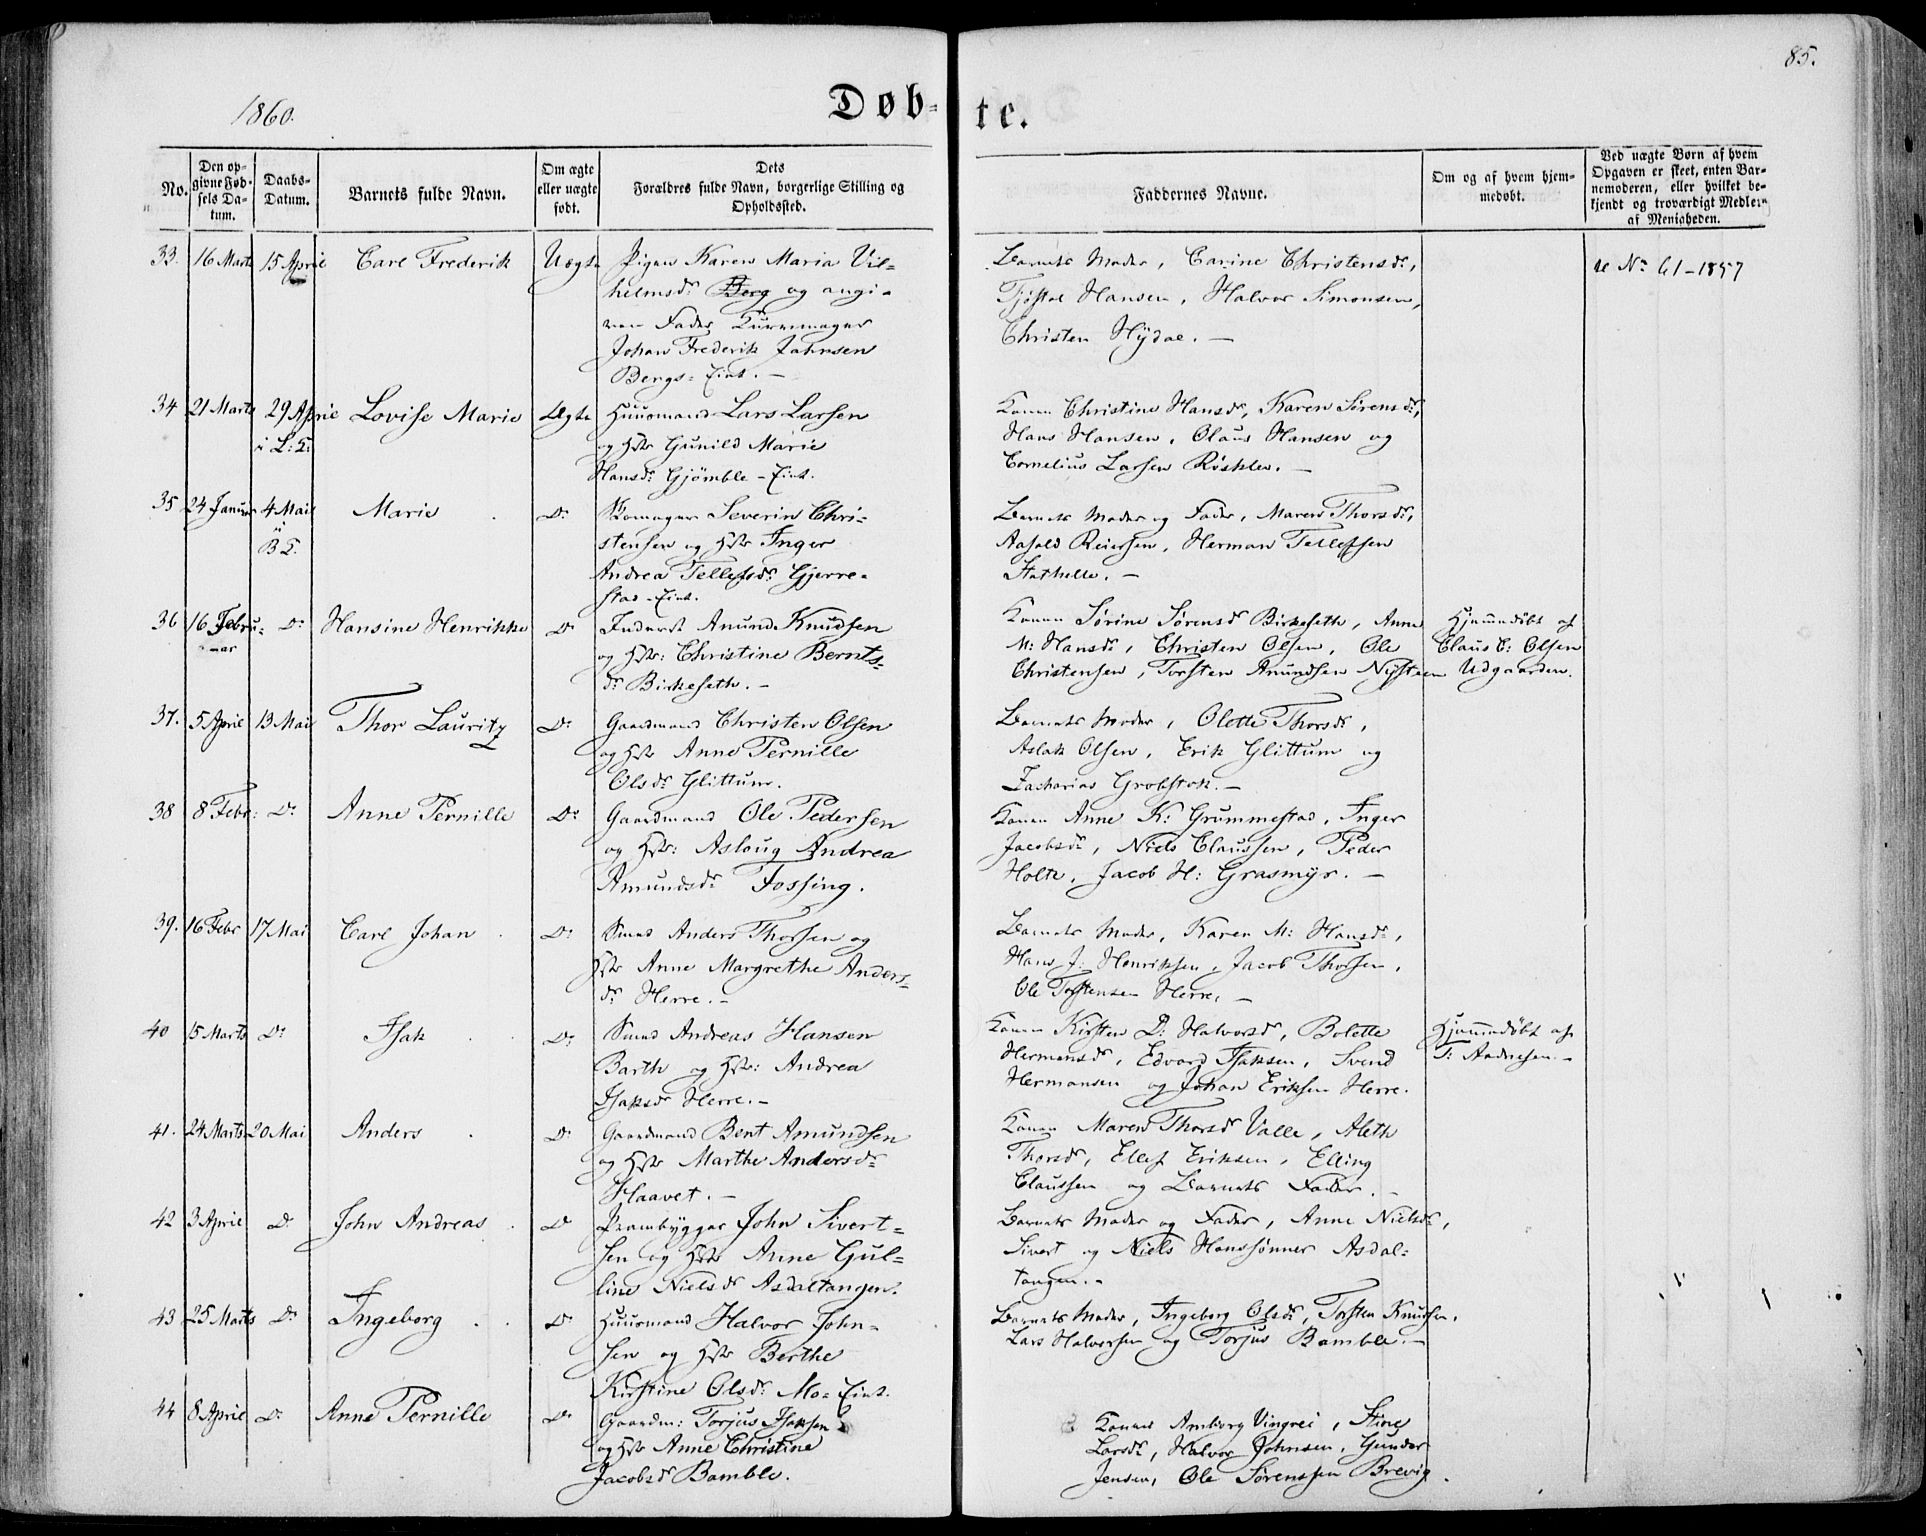 85.
1860.
Døb-
te.
No.
Den op-
givne Fød-
sels Da-
tum.
Daabs-
Datum.
Barnets fulde Navn.
Om ægte
eller uægte
født.
Dets
Forældres fulde Navn, borgerlige Stilling og
Opholdssted.
Faddernes Navne.
Om og af hvem hjem-
medøbt.
Ved uægte Børn af hvem
Opgaven er skeet, enten Bar-
nemoderen, eller hvilket be-
kjendt og troværdigt Medlem
af Menigheden.
33. 16 Marts 15 April Carl Frederik Uægte Pigen Karen Maria Vil-
helmsdr Berg og angi-
ven Fader Buntmager
Johan Frederik Jahnsen
Bergs-Eint. —
Barnets Moder, Carine Christensdr,
Tjøstol Hansen, Halvor Simonsen,
Christen Hydal. —
se No 61-1857
34 21 Marts 29 April Lovise Marie Ægte Huusmand Lars Larsen
i L: K:
og Hstr Gunild Marie
Hansdr Gjömble-Eint.
Konen Christine Hansdr, Karen Sørensdr,
Hans Hansen, Olaus Hansen og
Cornelius Larsen Røsklev. —
35 24 Januar 4 Mai Marie Do Skomager Severin Chri-
i
B K:
stensen og Hstr Inger
Andrea Tellefsdr Gjerre-
stad-Eint.
Barnets Moder og Fader, Maren Thorsdr,
Aasold Reiersen, Herman Tellefsen
Stathelle. —
36 16 Febru- Do Hansine Henrikke Do Inderst Anund Knudsen
uar
og Hstr: Christine Bernts-
dr Birkeseth. —
Konen Sørine Sørensdr Birkeseth, Anne
M: Hansdr, Christen Olsen, Ole
Christensen, Torsten Anundsen Nysteen
Hjemmedøbt af
Claus C: Olsen
Udgaarden.
37. 5 April 13 Mai Thor Lauritz Do Gaardmand Christen Olsen
og Hstr Anne Pernille
Olsdr Glittum.
Barnets Moder, Olette Thorsdr,
Aslak Olsen, Erik Glittum og
Zacharias Grobstok. —
38 8 Febr: Do Anne Pernille Do Gaardmand Ole Pedersen
og Hstr: Aslaug Andrea
Amundsdr Fossing.
Konen Anne K: Grummestad, Inger
Jacobsdr, Niels Claussen, Peder
Holte, Jacob H: Grasmyr. —
39. 16 Febr 17 Mai Carl Johan Do Smed Anders Thorsen og
Hstr Anne Margrethe Anders-
dr Herre. —
Barnets Moder, Karen M: Hansdr,
Hans J: Henriksen, Jacob Thorsen,
Ole Torstensen Herre. —
40 15 Marts Do Isak Do Smed Andreas Hansen
Barth og Hstr: Andrea
Isaksdr Herre. —
Konen Kirsten D: Halvorsdr, Bolette
Hermansdr, Edvard Isaksen, Svend
Hermansen og Johan Eriksen Herre.
Hjemmedøbt af
T: Aadnesen. —
41. 24 Marts 20 Mai Anders Do Gaardmand Bent Amundsen
og Hstr Marthe Andersdr
Haavet. —
Konen Maren Thorsdr Valle, Aleth
Thorsdr, Ellef Eriksen, Elling
Claussen og Barnets Fader. —
42 3 April Do John Andreas Do Prambygger John Sivert-
sen og Hstr Anne Gul-
line Nielsdr Asdaltangen.
Barnets Moder og Fader, Anne Nielsdr,
Sivert og Niels Hanssønner Asdal-
tangen. —
43 25 Marts Do Ingeborg Do Huusmand Halvor John-
sen og Hstr Berthe
Kirstine Olsdr Mo-Eint.
Barnets Moder, Ingeborg Olsdr, Torsten Knutsen,
Lars Halvorsen og Torjus Bamble. —
44 8 April Do Anne Pernille Do Gaardm: Torjus Isaksen
og Hstr Anne Christine
Jacobsdr Bamble.
Konen Amborg Vingrei, Stine
Larsdr, Halvor Johnsen, Gunder
Jensen, Ole Sørenssen Brevig.